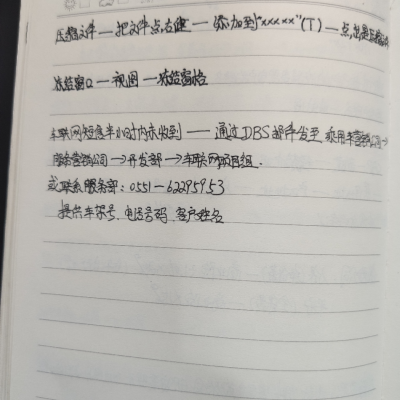 压缩文件 — 把文件点右键 — 添加到"xxxxx"(T) — 点,出是压缩
冻结窗口 — 视图 — 冻结窗格
车联网短信半小时内未收到 — 通过DBS邮件发至 乘用车营销公司→
服务营销公司→开发部→车联网项目组.
或联系服务部:0551-62295953
提供车架号、电话号码、客户姓名